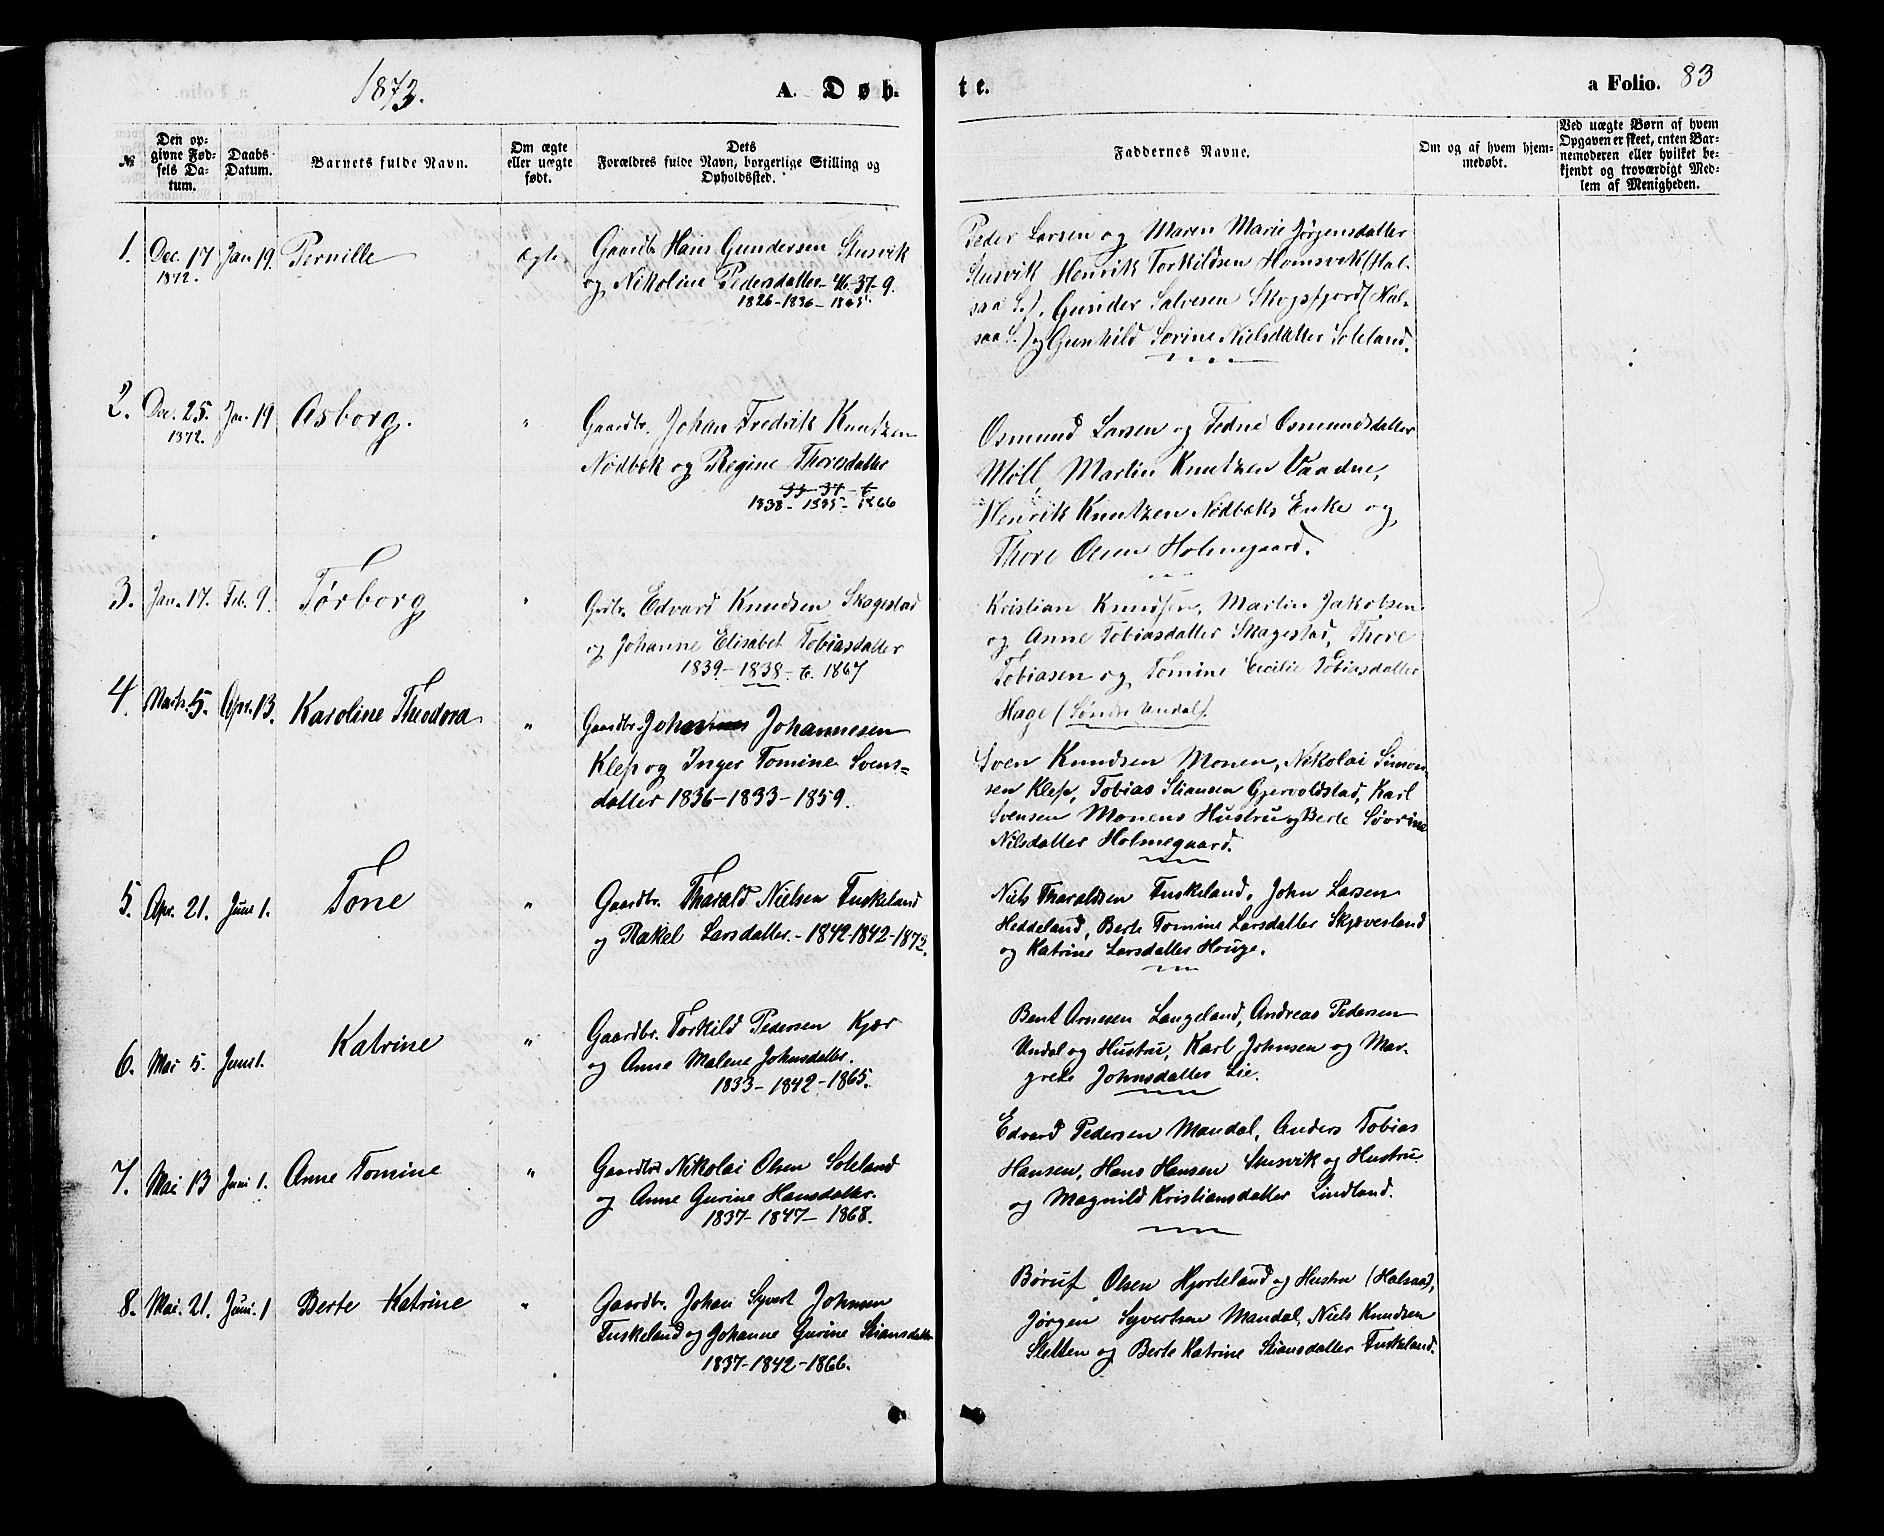 1873.
A. Døb-
te.
a Folio. 83
№
Den opgivne Fødsels Datum.
Daabs Datum.
Barnets fulde Navn.
Om ægte eller uægte født.
Dets Forældres fulde Navn, borgerlige Stilling og Opholdssted.
Faddernes Navne.
Om og af hvem hjemmedøbt.
Ved uægte Børn af hvem Opgaven er skeet, enten Barnemoderen eller hvilket bekjendt og troværdigt Medlem af Menigheden.
1. Dec. 17 Jan 19. Pernille ægte Gaardbr Hans Gundersen Stusvik
1872. og Nikoline Pedersdatter 46-37-9.
1826-1836-1865.
Peder Larsen og Maren Marie Jørgensdatter
Stusvik Henrik Torkildsen Homsvik (Hal-
saa S.), Gunder Salvesen Skogsfjord (Hal-
saa S.) og Gunhild Sorine Nielsdatter Soteland.
2. Dec. 25. Jan. 19 Asborg. " Gaardbr. Johan Fredrik Knutzen
1872. Nødbæk og Regine Thoresdatter
1838-1835-1866
Osmund Larsen og Tedne Osmundsdatter
Møll, Martin Knutzen Vaadne,
Henrik Knutzen Nødbæks Enke og
Thore Olsen Holmegaard.
3. Jan. 17. Feb. 9. Tørborg " Grdbr. Edvard Knudsen Skagestad
og Johanne Elisabet Tobiasdatter
1839-1838-t. 1867
Kristian Knudsen, Martin Jakobsen
og Anne Tobiasdatter Skagestad, Thore
Tobiasen og Tomine Cecilie Tobiasdatter
Hage (Søndre Undal).
4. Marts 5. Apr. 13. Karoline Theodora " Gaardbr. Johannes Johannesen
Klep og Inger Tomine Svens-
datter 1836-1833-1859.
Sven Knudsen Monen, Nikolai Simon-
sen Klep, Tobias Stiansen Gjervoldstad, Karl
Svensen Monens Hustru og Berte Søvrine
Nilsdatter Holmegaard.
5. Apr. 21. Juni 1. Tone " Gaardbr. Tharald Nielsen Tuskeland
og Rakel Larsdatter.-1842-1842-1872.
Niels Tharaldsen Tuskeland, John Larsen
Heddeland, Berte Tomine Larsdatter Skjævesland
og Katrine Larsdatter Houge.
6. Mar 5. Juni 1. Katrine " Gaardbr. Torkild Pedersen Kjær
og Anne Malene Johnsdatter.
1833-1842-1865.
Bent Arnesen Langeland, Andreas Pedersen
Undal og Hustru, Karl Johnsen og Mar-
grete Johnsdatter Lie.
7. Mai 13 Juni 1. Anne Tomine " Gaardbr Nikolai Olsen Soteland
og Anne Gurine Hansdatter.
1837-1847-1868.
Edvard Pedersen Mandal, Anders Tobias
Hansen, Hans Hansen Stusvik og Hustru
og Magnild Kristiansdatter Lindland.
8. Mai. 21. Juni. 1 Berte Katrine " Gaardbr. Johan Syvert Johnsen
Tuskeland og Johanne Gurine Stiansdatter
1837-1842-1866.
Børuf Olsen Hjorteland og Hustru (Halsaa),
Jørgen Syvertsen Mandal, Niels Knudsen
Sletten og Berte Katrine Stiansdatter Tuskeland.